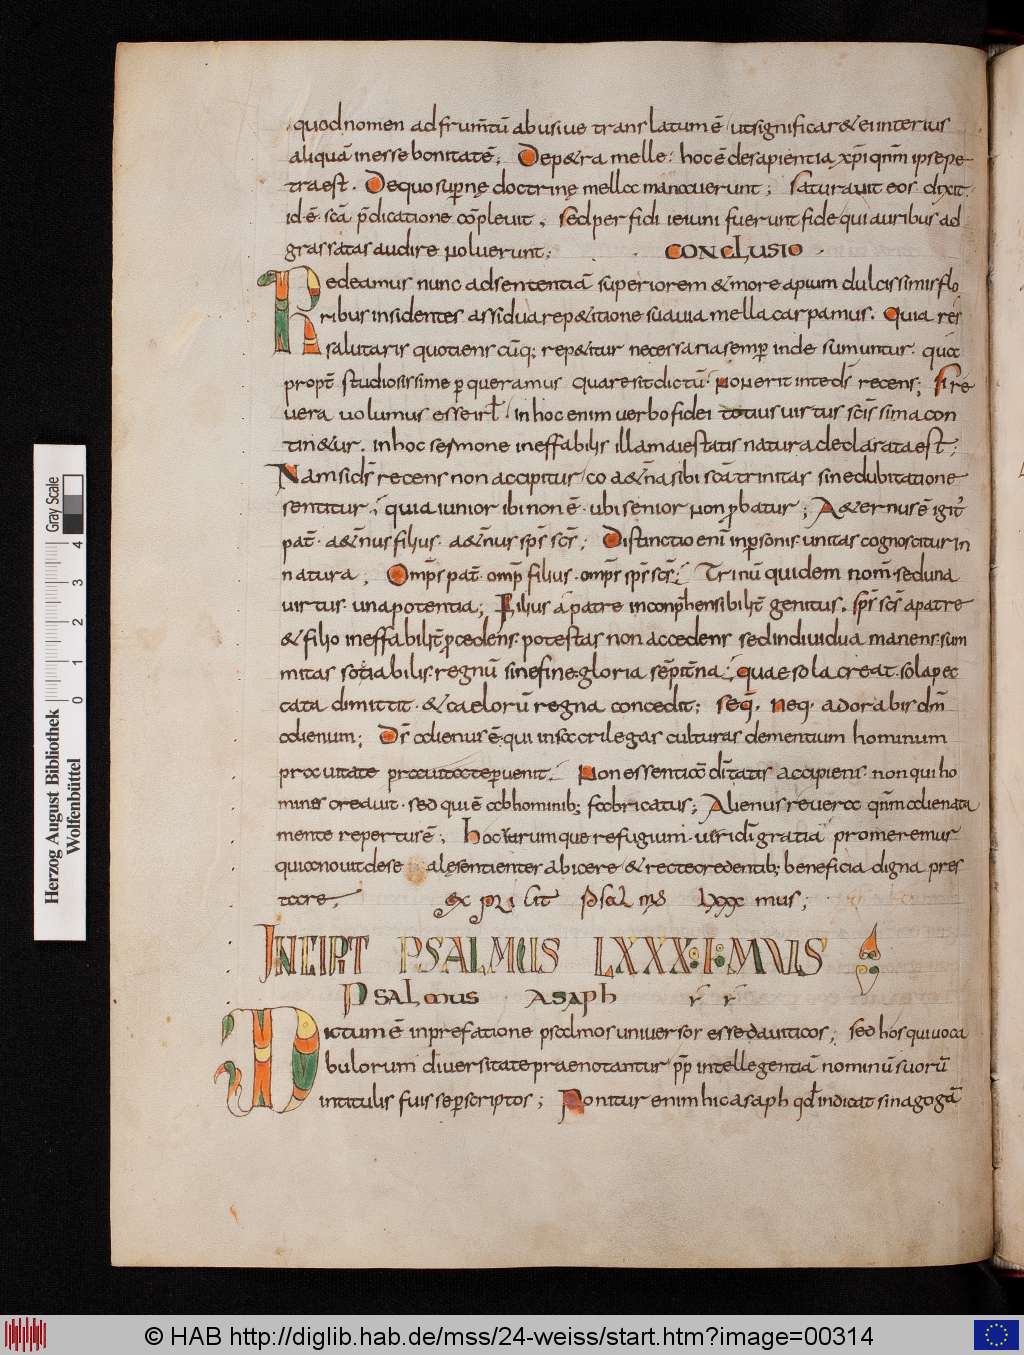 quod nomen ad frum̄tū abusiue translatum ē ut significar& ei interius
aliquā inesse bonitatē; De p&ra melle: hoc ē de sapientia xp̄i qn̄m ipse pe
tra est. De quo sup̄nę doctrine mella manauerunt; Saturauit eos dixit
id ē scā p̄dicatione cō̄pleuit. Sed perfidi ieiuni fuerunt fide qui auribus ad
grassatas audire noluerunt; CONCLUSIO
Redeamus nunc ad sententiā superiorem & more apium dulcissimis flo
ribus insidentes assidua rep&itione suauia mella carpamus. Quia res
salutaris quotiens cūq; rep&itur necessaria semp̄ inde sumuntur. qua
propt̄ studiosissime p̄queramus quare sit dictū. non erit in te ds̄ recens; Si re
uera uolumus esse isrl̄ in hoc enim uerbo fidei totius uirtus scīssima con
tin&ur. in hoc sermone ineffabilis illa maiestatis natura declarata est;
Nam si ds̄ recens non accipitur coa&n̄a sibi scā trinitas sine dubitatione
sentitur; quia iunior ibi non ē ubi senior non p̄batur; A&ernus ē igit̄
pat̄. a&n̄us filius. a&n̄us sp̄s scs̄; Distinctio enī in p̄sonis unitas cognoscitur in
natura; Omp̄s pat̄. omp̄s filius. omp̄s sp̄s scs̄; Trinū quidem nom̄ sed una
uirtus. una potentia; Filius a patre inconp̄hensibilit̄ genitus. sp̄s scs̄ a patre
& filio ineffabilit̄ p̄cedens. potestas non accedens sed indiuidua manens. sum
mitas sotiabilis. regnū sine fine. gloria semp̄it̄na; quae sola creat. sola pec
cata dimittit. & caelorū regna concedit; seq̄. Neq. adorabis dm̄
alienum; Ds̄ alienus ē. qui in sacrilegas culturas dementium hominum
prauitate prauitate peruenit. Non essentiā diūitatis accipiens. non qui ho
mines creauit. sed qui ē ab hominib; fabricatus; Alienus reuera qn̄m aliena ta
mente repertus ē; hoc uerum que refugium uiri diī gratia promeremur
qui a nouit de se male sentienter abicere & recte credentib; beneficia digna pres
tare. Ex pli cit psal mus lxxx mus;
INCIPIT PSALMUS LXXX·I·MUS
PSALMUS ASAPH
Dictum ē in prefatione psalmos uniuersos esse dauiticos; sed hos qui uoca
bulorum diuersitate praenotantur pp̄ intellegentiā nominū suorū
in titulis fuisse p̄scriptos; Ponitur enim hic asaph qd̄ indicat sinagogā
Herzog August Bibliothek
Wolfenbüttel
Gray Scale
0 1 2 3 4
© HAB http://diglib.hab.de/mss/24-weiss/start.htm?image=00314